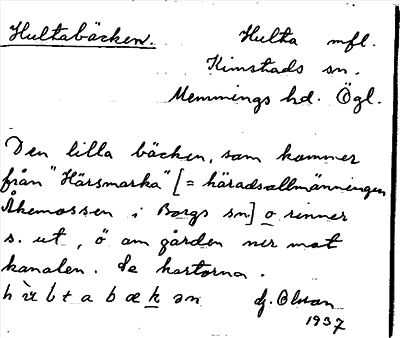 Hultabäcken.
Hulta mfl.
Kimstads sn.
Memmings hd. Ögl.
Den lilla bäcken, som kommer
från "Härsmarka" [= häradsallmänningen
Åkemossen i Borgs sn] o rinner
s. ut, ö om gården ner mot
kanalen. Se kartorna.
bækən
Olson
1937